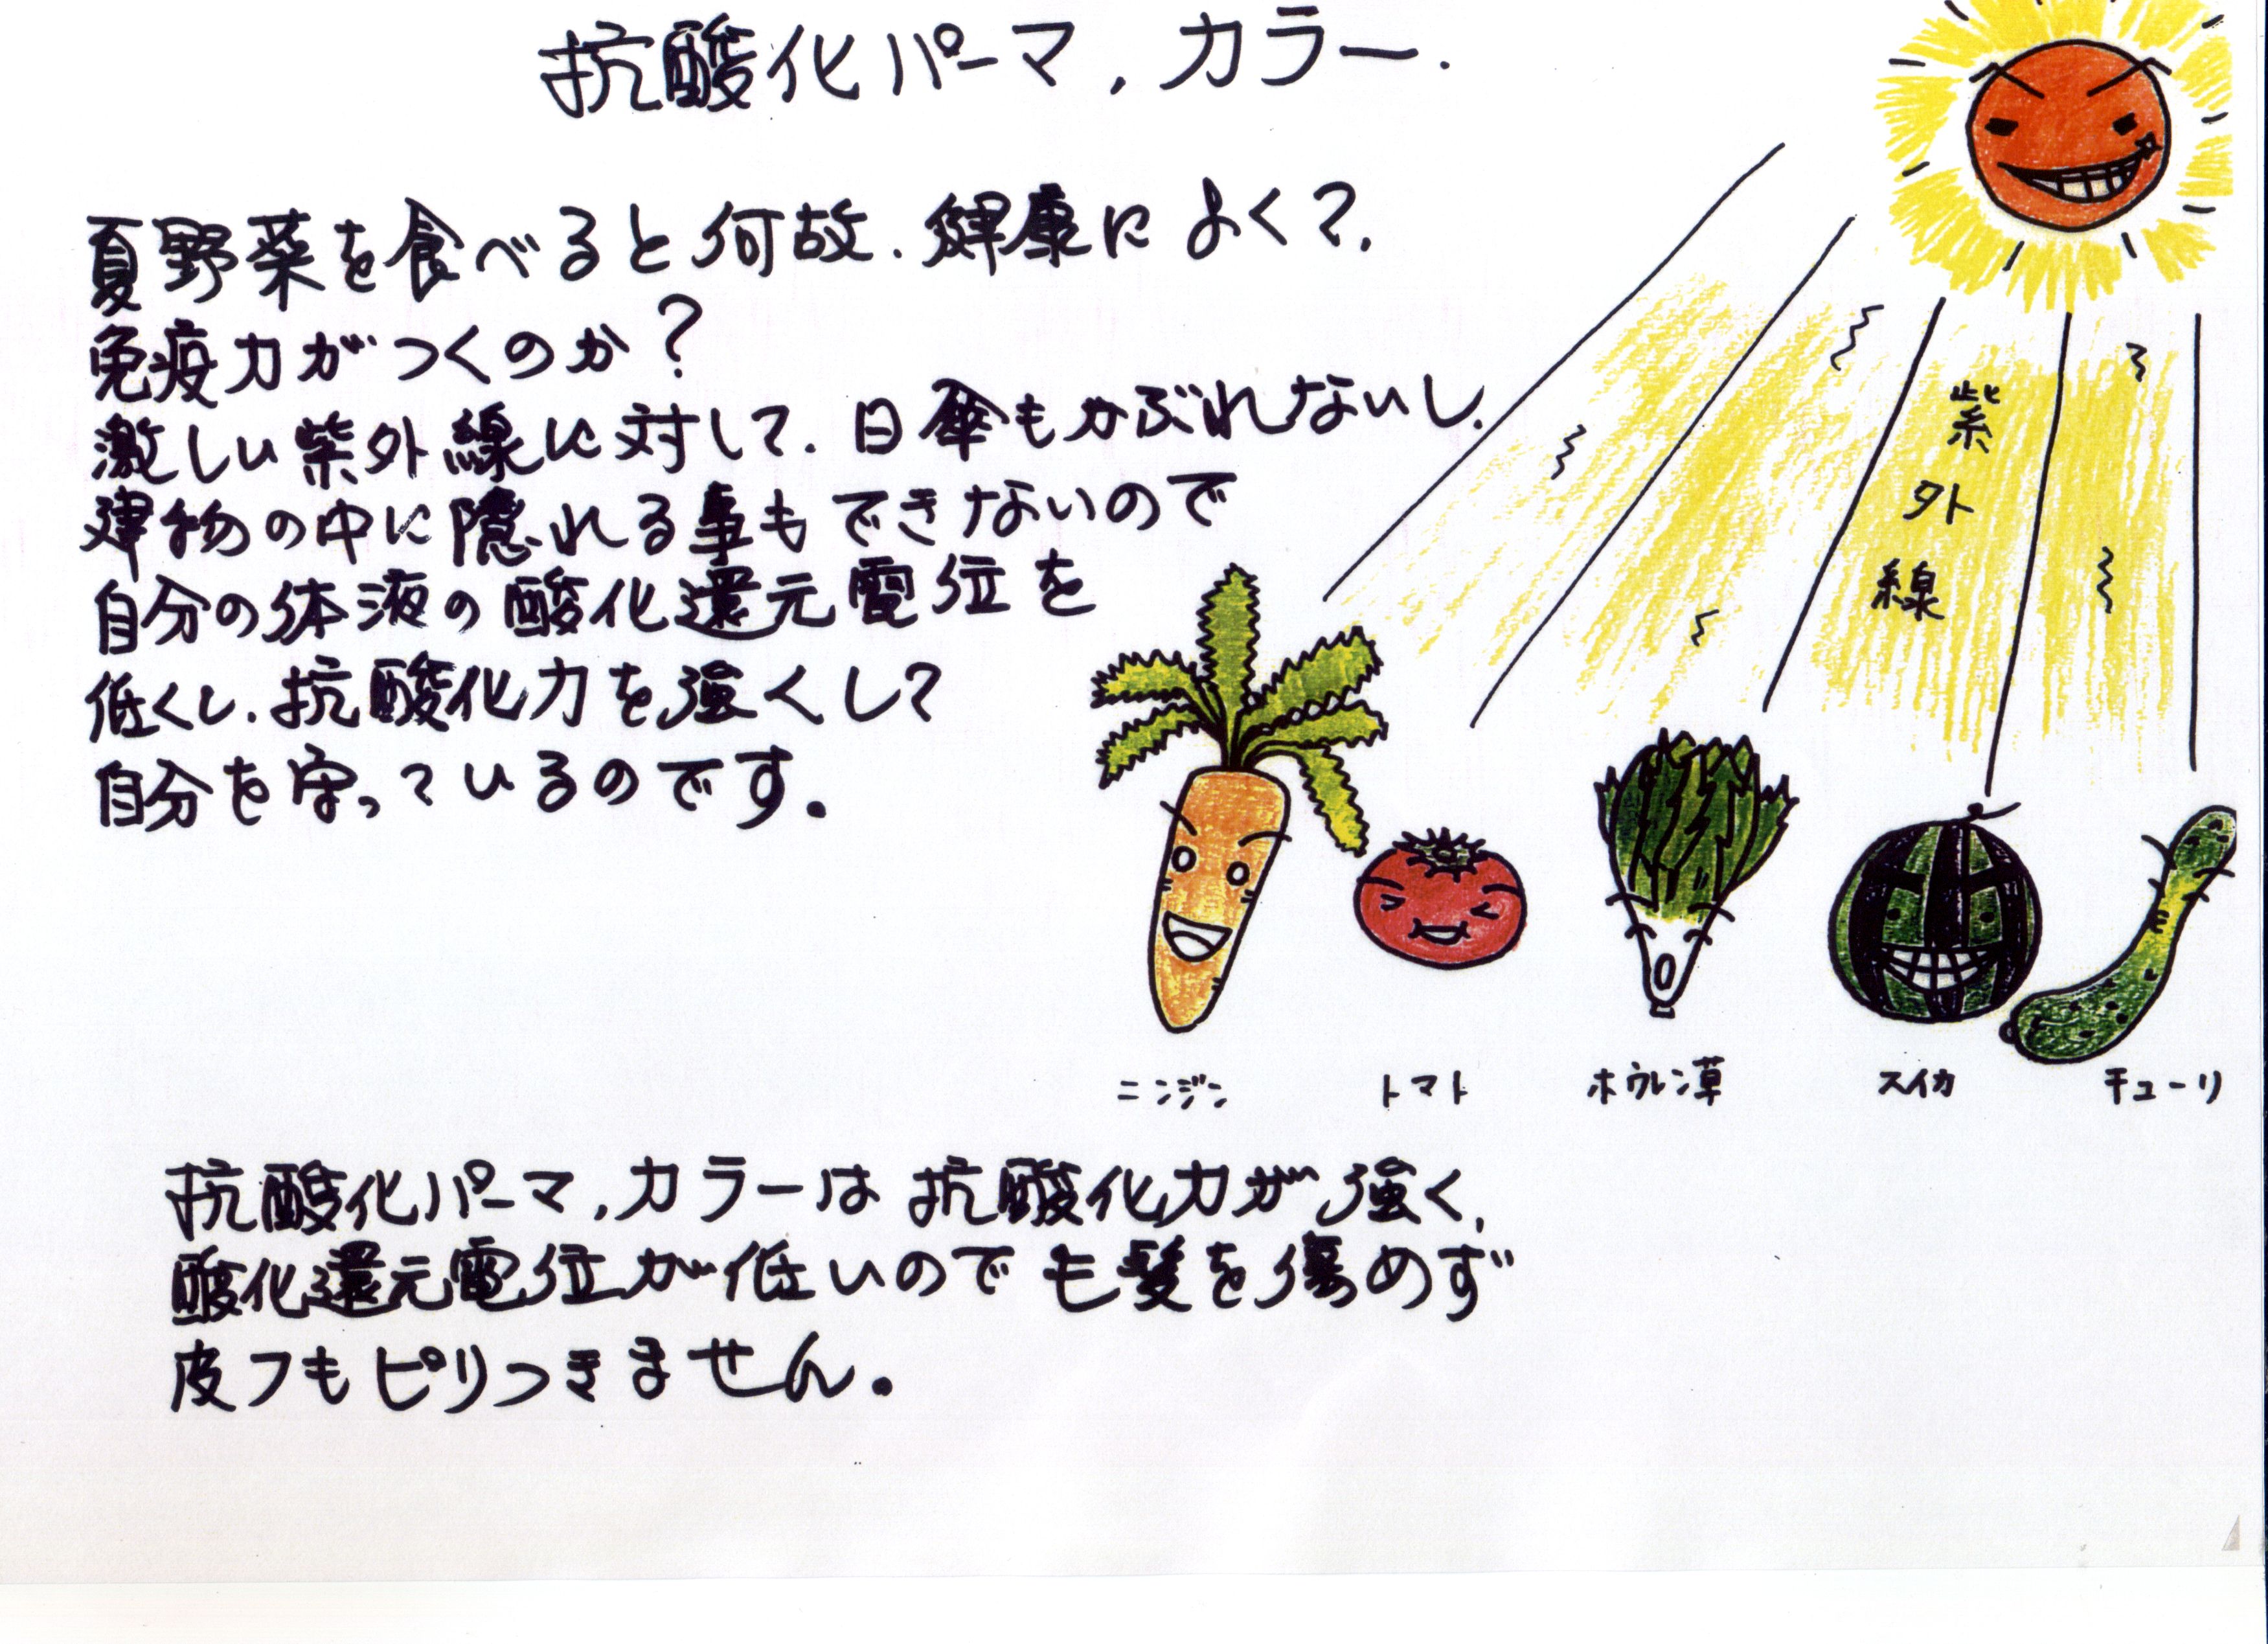 抗酸化パーマ、カラー.
夏野菜を食べると何故、健康によくて、
免疫力がつくのか？
激しい紫外線に対して、日傘もかぶれないし、
建物の中に隠れる事もできないので
自分の体液の酸化還元電位を
低くし、抗酸化力を強くして
自分を守っているのです。
紫外線
ニンジン
トマト
ホウレン草
スイカ
キューリ
抗酸化パーマ、カラーは抗酸化力が強く、
酸化還元電位が低いのでも髪を傷めず
皮フもピリつきません。